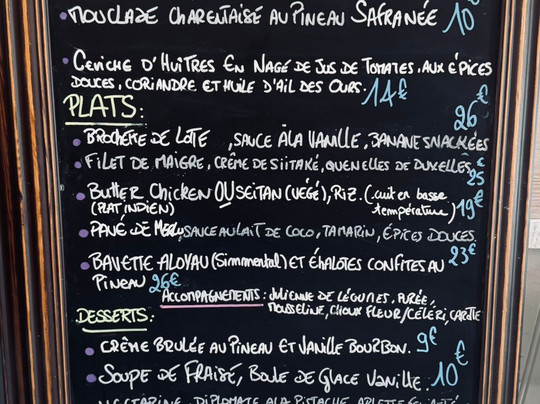 MOUCLADE CHARENTAISE AU PINEAU SAFRANÉE 10€
CEVICHE D'HUÎTRES EN NAGE DE JUS DE TOMATES, AUX ÉPICES
DOUCES, CORIANDRE ET HUILE D'AIL DES OURS. 14€
PLATS:
26€
BROCHETTE DE LOTTE, SAUCE À LA VANILLE, BANANE SNACKÉES
FILET DE MAIGRE, CRÈME DE SIITAKÉ, QUENELLES DE DUXELLES, 25€
BUTTER CHICKEN OU SEITAN (VÉGÉ), RIZ. (cuit en basse
(PLAT INDIEN) température) 19€
PAVÉ DE, SAUCE AU LAIT DE COCO, TAMARIN, ÉPICES DOUCES
23€
BAVETTE ALOYAU (Simmental) ET ÉHALOTES CONFITES AU
PINEAU 26€
ACCOMPAGNEMENTS: JULIENNE DE LÉGUMES, PURÉE,
MOUSSELINE, CHOUX FLEUR/CÉLERI, CAROTTE
DESSERTS:
CRÈME BRULÉE AU PINEAU ET VANILLE BOURBON. 9€
SOUPE DE FRAISE, BOULE DE GLACE VANILLE. 10€
NECTARINE, DIPLOMATE A LA PISTACHE